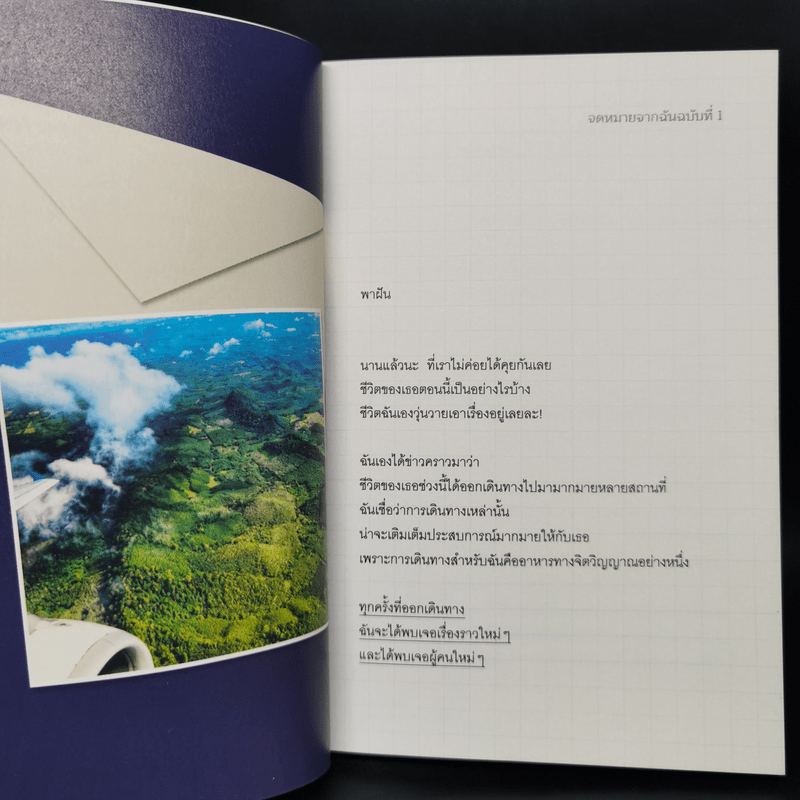 จดหมายจากฉันฉบับที่ 1
พาฝัน
นานแล้วนะ ที่เราไม่ค่อยได้คุยกันเลย
ชีวิตของเธอตอนนี้เป็นอย่างไรบ้าง
ชีวิตฉันเองวุ่นวายเอาเรื่องอยู่เลยละ!
ฉันเองได้ข่าวคราวมาว่า
ชีวิตของเธอช่วงนี้ได้ออกเดินทางไปมามากมายหลายสถานที่
ฉันเชื่อว่าการเดินทางเหล่านั้น
น่าจะเติมเต็มประสบการณ์มากมายให้กับเธอ
เพราะการเดินทางสำหรับฉันคืออาหารทางจิตวิญญาณอย่างหนึ่ง
ทุกครั้งที่ออกเดินทาง
ฉันจะได้พบเจอเรื่องราวใหม่ๆ
และได้พบเจอผู้คนใหม่ๆ